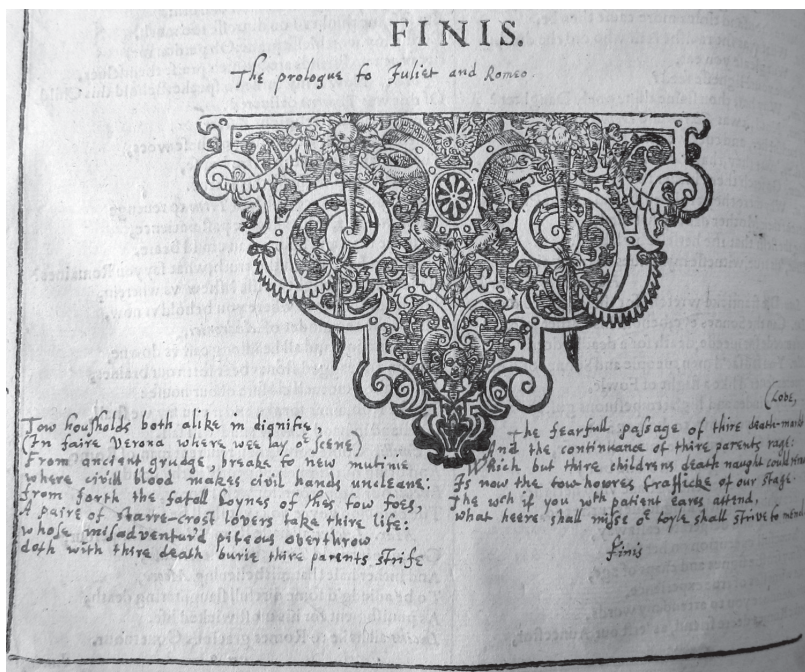 FINIS.
The prologue to Juliet and Romeo.
Tow housholds both alike in dignitie,
(In faire Verona where wee lay oe scene)
From ancient grudge, breake to new mutinie
where civill blood makes civil hands uncleane:
from forth the fatall loynes of thes tow foes,
A paire of starre-crost lovers take thire life:
whose misadventur'd piteous overthrow
doth with thire death burie thire parents strife
(Love,
The fearfull passage of thire death-markt
And the continuance of thire parents rage:
Which but thire childrens death naught could
Is now the tow-howres trafficke of our stage.
The wch if you wth patient eares attend,
what heere shall misse oe toyle shall strive to mend
finis